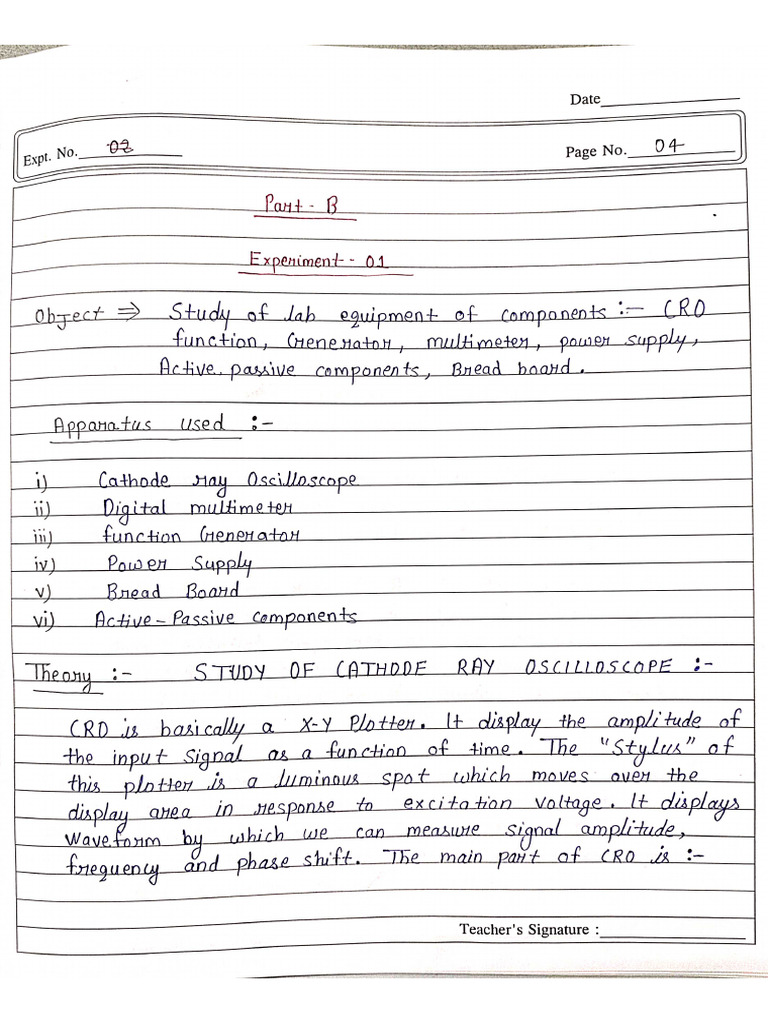 Date
Expt. No. 02
Page No. 04
Part - B
Experiment - 01
Object ⇒ Study of lab equipment of components :- CRO
function, Generator, multimeter, power supply,
Active passive components, Bread board.
Apparatus used :-
i) Cathode ray Oscilloscope
ii) Digital multimeter
iii) function Generator
iv) Power Supply
v) Bread Board
vi) Active - Passive components
Theory :- STUDY OF CATHODE RAY OSCILLOSCOPE :-
CRO is basically a X-Y Plotter. It display the amplitude of
the input signal as a function of time. The "Stylus" of
this plotter is a luminous spot which moves over the
display area in response to excitation voltage. It displays
waveform by which we can measure signal amplitude,
frequency and phase shift. The main part of CRO is :-
Teacher's Signature :